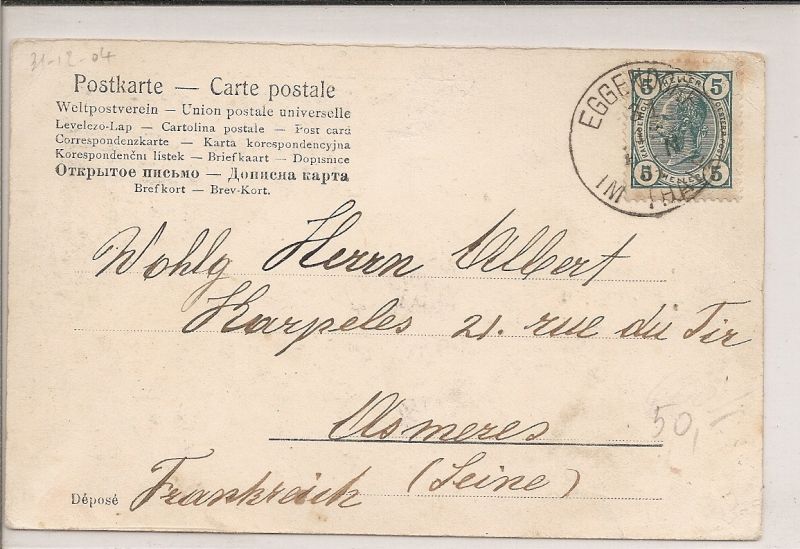 31-12-04
Postkarte — Carte postale
Weltpostverein — Union postale universelle
Levelezo-Lap — Cartolina postale — Post card
Correspondenzkarte — Karta korespondencyjna
Korespondenční listek — Briefkaart — Dopisnice
Открытое письмо — Дописна карта
Brefkort — Brev-Kort.
EGGENDORF
IM THALE
5 HELLER 5
5 HELLER 5
Wohlg Herrn Albert
Karpeles 21. rue du Tir
Asmeres
(Seine)
Frankreich
50,-
Déposé